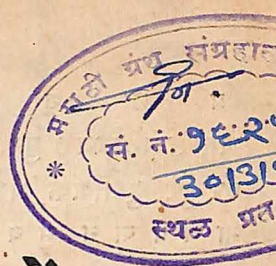 मराठी ग्रंथ संग्रहाल
सं. नं. १६२५
३०/३/
स्थळ प्रत